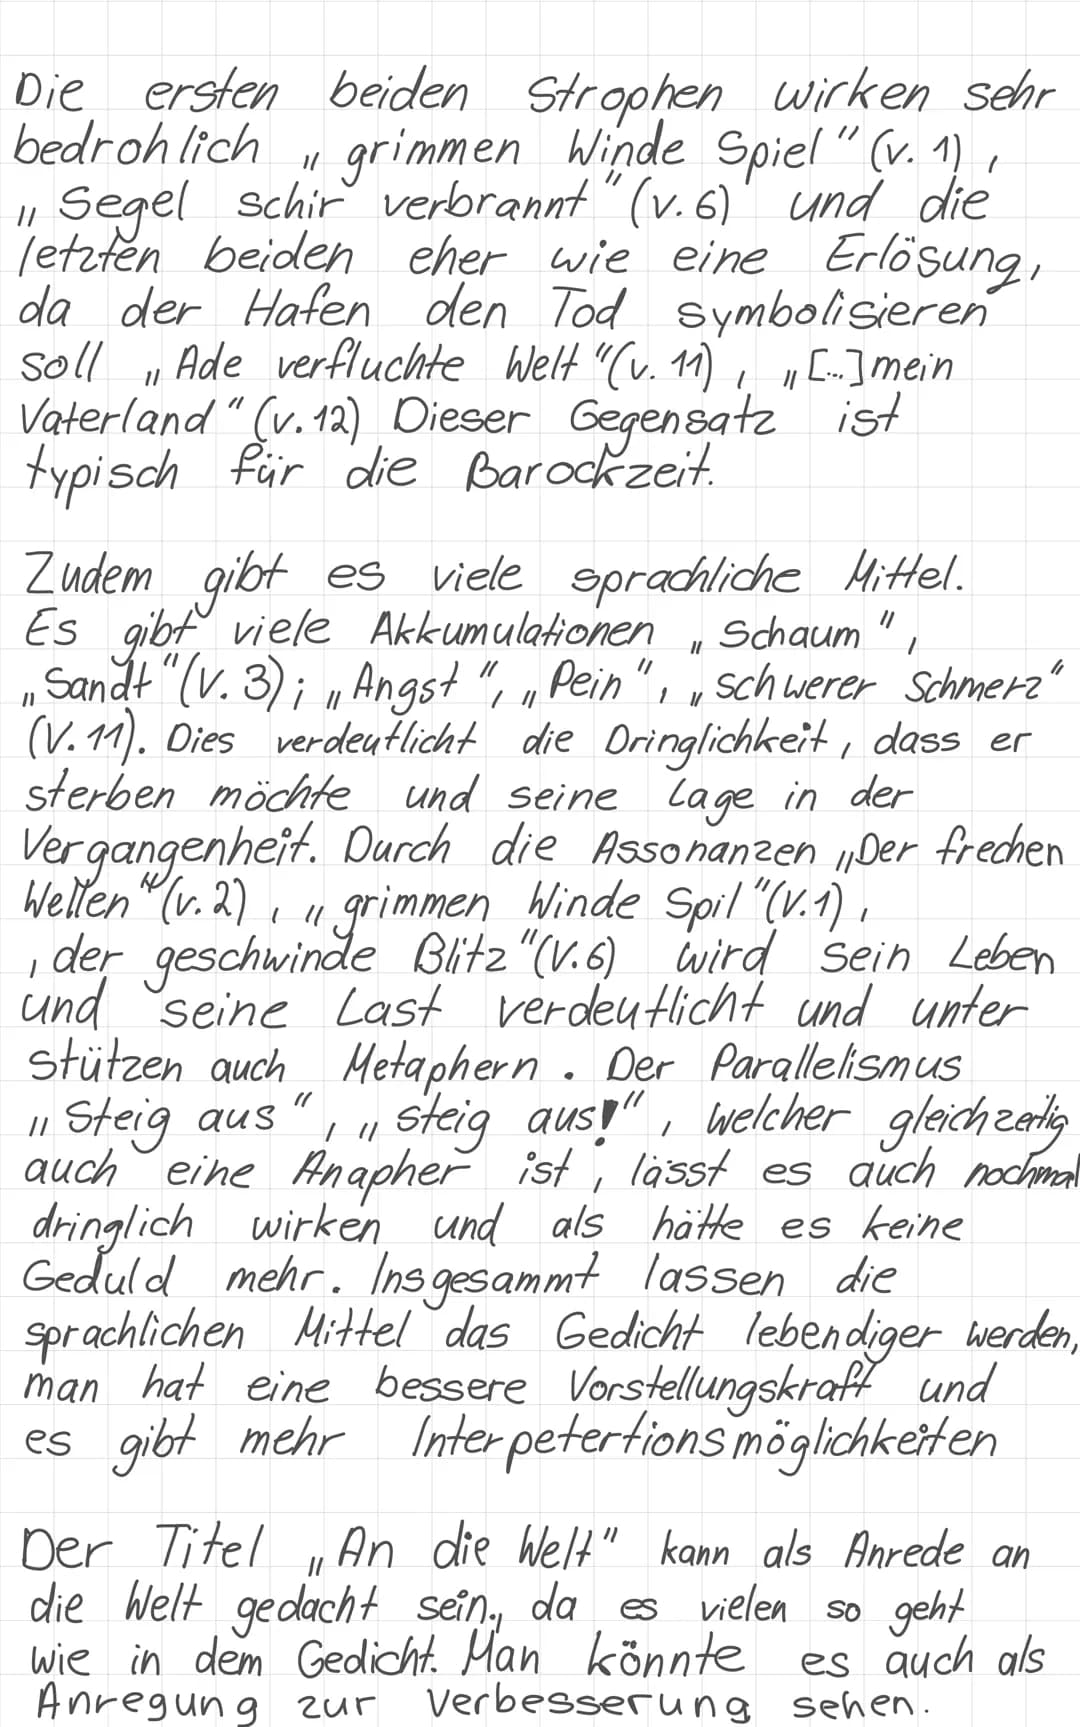 Die ersten beiden Strophen wirken sehr
bedrohlich „grimmen Winde Spiel" (v. 1),
„Segel schir verbrannt" (v. 6) und die
letzten beiden eher wie eine Erlösung,
da der Hafen den Tod symbolisieren
soll „Ade verfluchte Welt" (v. 11), „[...] mein
Vaterland" (v. 12) Dieser Gegensatz ist
typisch für die Barockzeit.
Zudem gibt es viele sprachliche Mittel.
Es gibt viele Akkumulationen „Schaum",
„Sandt" (V. 3); „Angst", „Pein", „schwerer Schmerz"
(V. 11). Dies verdeutlicht die Dringlichkeit, dass er
sterben möchte und seine Lage in der
Vergangenheit. Durch die Assonanzen „Der frechen
Wellen" (v. 2), „grimmen Winde Spil" (V. 1),
, der geschwinde Blitz" (V. 6) wird sein Leben
und seine Last verdeutlicht und unter
stützen auch Metaphern. Der Parallelismus
„Steig aus", „steig aus!", welcher gleichzeitig
auch eine Anapher ist, lässt es auch nochmal
dringlich wirken und als hätte es keine
Geduld mehr. Insgesammt lassen die
sprachlichen Mittel das Gedicht lebendiger werden,
man hat eine bessere Vorstellungskraft und
es gibt mehr Interpetertionsmöglichkeiten
Der Titel „An die Welt" kann als Anrede an
die Welt gedacht sein, da es vielen so geht
wie in dem Gedicht. Man könnte es auch als
Anregung zur Verbesserung sehen.